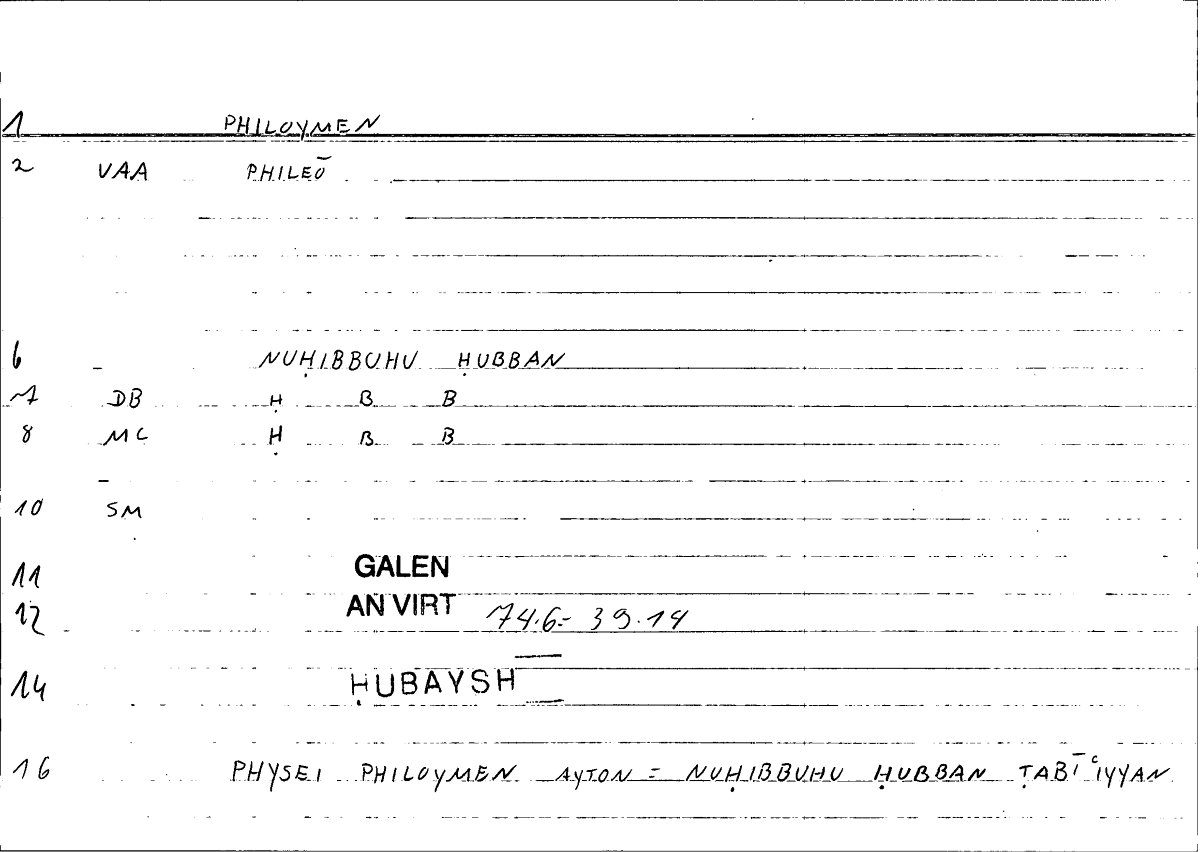 1 PHILOYMEN
2 VAA PHILEŌ
6 _ NUḤIBBUHU ḤUBBAN
7 DB Ḥ B B
8 MC Ḥ B B
_
10 SM
11 GALEN
12 AN VIRT 74.6 = 39.14
14 ḤUBAYSH
16 PHYSEI PHILOYMEN AYTON = NUḤIBBUHU ḤUBBAN ṬABĪʿIYYAN